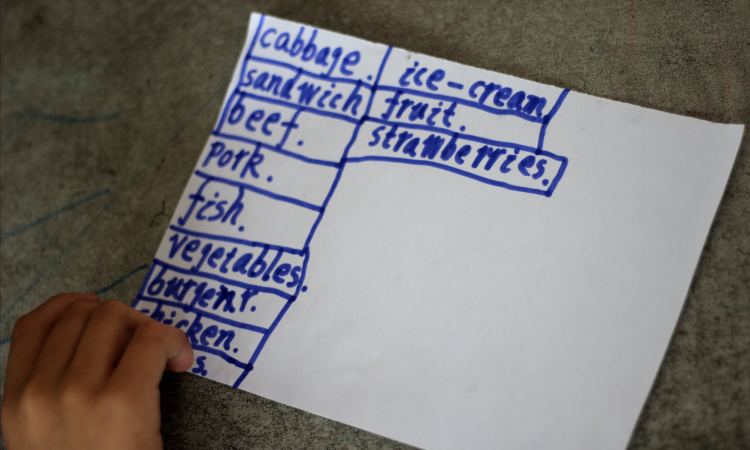 cabbage.
sandwich
beef.
Pork.
fish.
vegetables.
burgenr.
chicken.
s.
ice-cream
fruit.
strawberries.